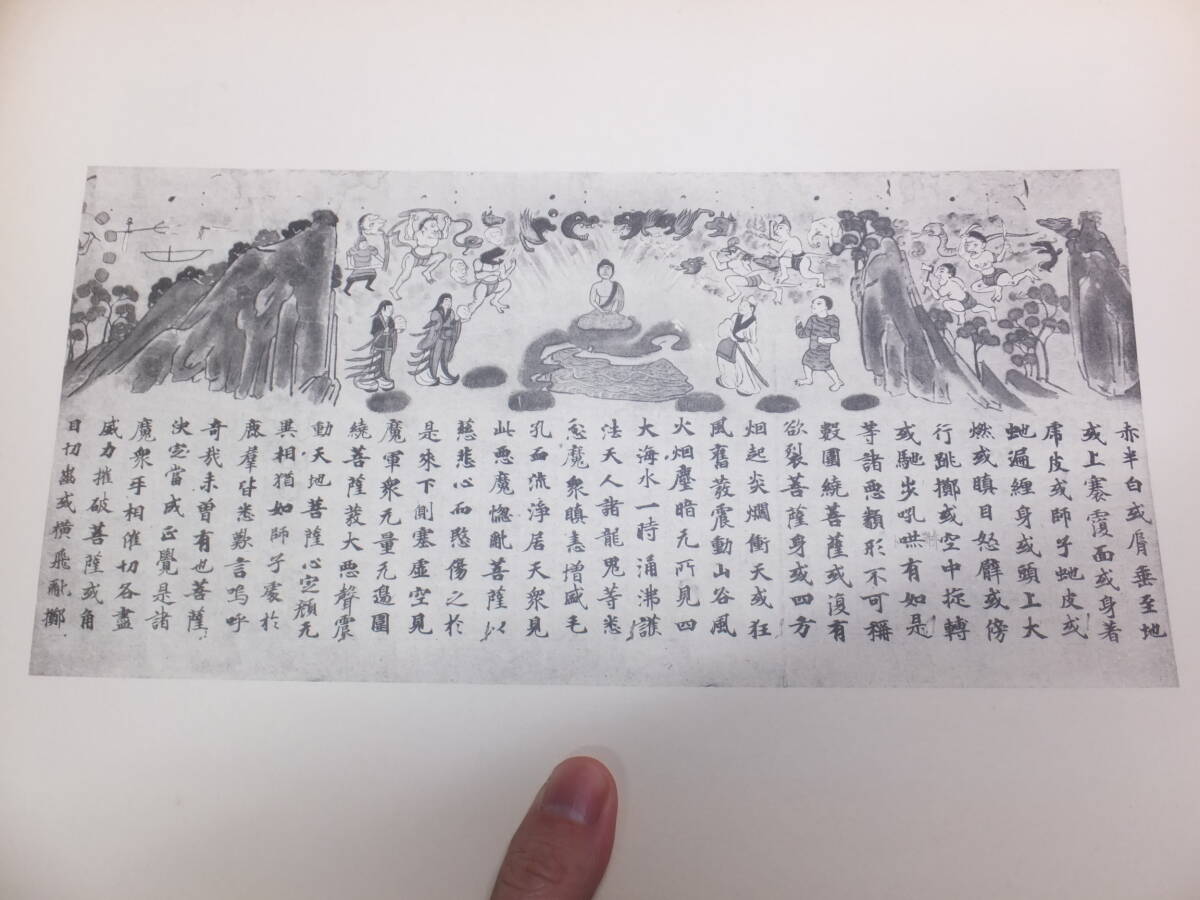 赤半白或脣垂至地
或上褰覆面或身著
席皮或師子虵皮或
虵遍纏身或頭上大
燃或瞋目怒臂或傍
行跳擲或空中旋轉
或馳步吼哮有如是
等諸惡類形不可稱
數圍繞菩薩或復有
欲裂菩薩身或四方
烟起炎爓衝天或狂
風奮發震動山谷風
火烟塵暗无所見四
大海水一時涌沸護
法天人諸龍鬼等悉
忿魔衆瞋恚增盛毛
孔血流淨居天衆見
此惡魔惱亂菩薩以
慈悲心而愍傷之於
是來下側塞虛空見
魔軍衆无量无邊圍
繞菩薩發大惡聲震
動天地菩薩心定顔无
異相猶如師子處於
鹿羣皆悉歎言嗚呼
奇哉未曾有也菩薩
決定當成正覺是諸
魔衆手相催切各盡
威力摧破菩薩或角
目切齒或橫飛亂擲